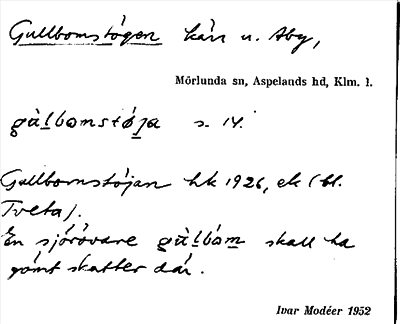 Gullbomstögen kärr u. Åby,
Mörlunda sn, Aspelands hd, Klm. l.
gùl̲bomstø̀j̲a s. 14.
Gullbomstöjan hk 1926, ek (bl.
Tveta).
En sjörövare gùl̲bòm̲ skall ha
gömt skatter där.
Ivar Modéer 1952